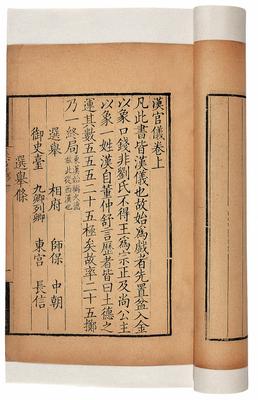 漢官儀卷上
凡此書皆漢儀也故始為戲者先置盆入金
以象口錢非劉氏不得王為宗正及尚公主
以象一姓漢自董仲舒言歷者皆曰土德之
運其數五五五二十五極矣故率二十五擲
乃一終局東漢稱火德
故此從西漢也
選舉 相府 師保 中朝
御史臺 九卿列卿 東宮 長信
選舉條